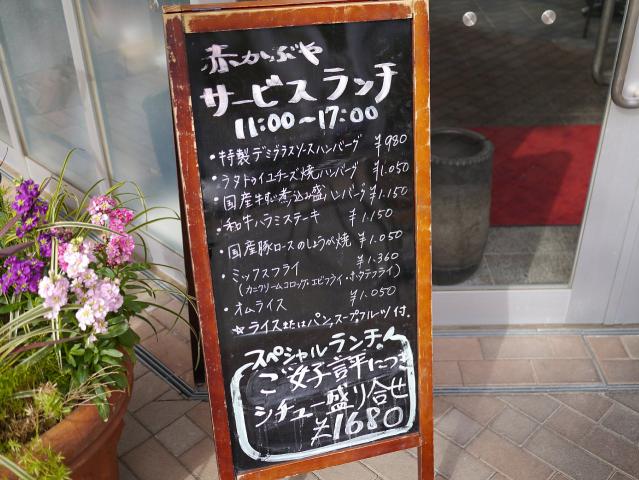 赤かぶや
サービスランチ
11:00～17:00
・特製デミグラスソースハンバーグ ¥980
・ラタトゥイユチーズ焼ハンバーグ ¥1.050
・国産牛すじ煮込み盛ハンバーグ ¥1,150
・和牛ハラミステーキ ¥1,150
・国産豚ロースのしょうが焼 ¥1.050
・ミックスフライ ¥1.360
(カニクリームコロッケ・エビフライ・ホタテフライ)
・オムライス ¥1.050
☆ライスまたはパン、スープ、フルーツ付.
スペシャルランチ
ご好評につき
シチュー盛り合せ
¥1680